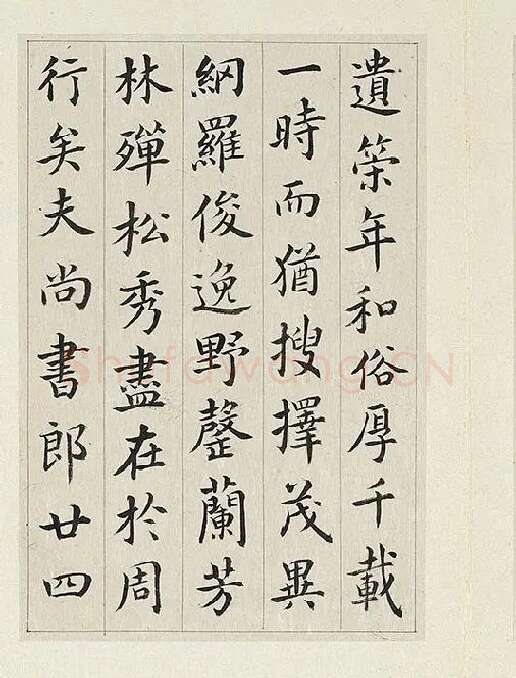 遺築年和俗厚千載
一時而猶搜擇茂異
網羅俊逸野罄蘭芳
林殫松秀盡在於周
行矣夫尚書郎廿四
Shufawang.CN